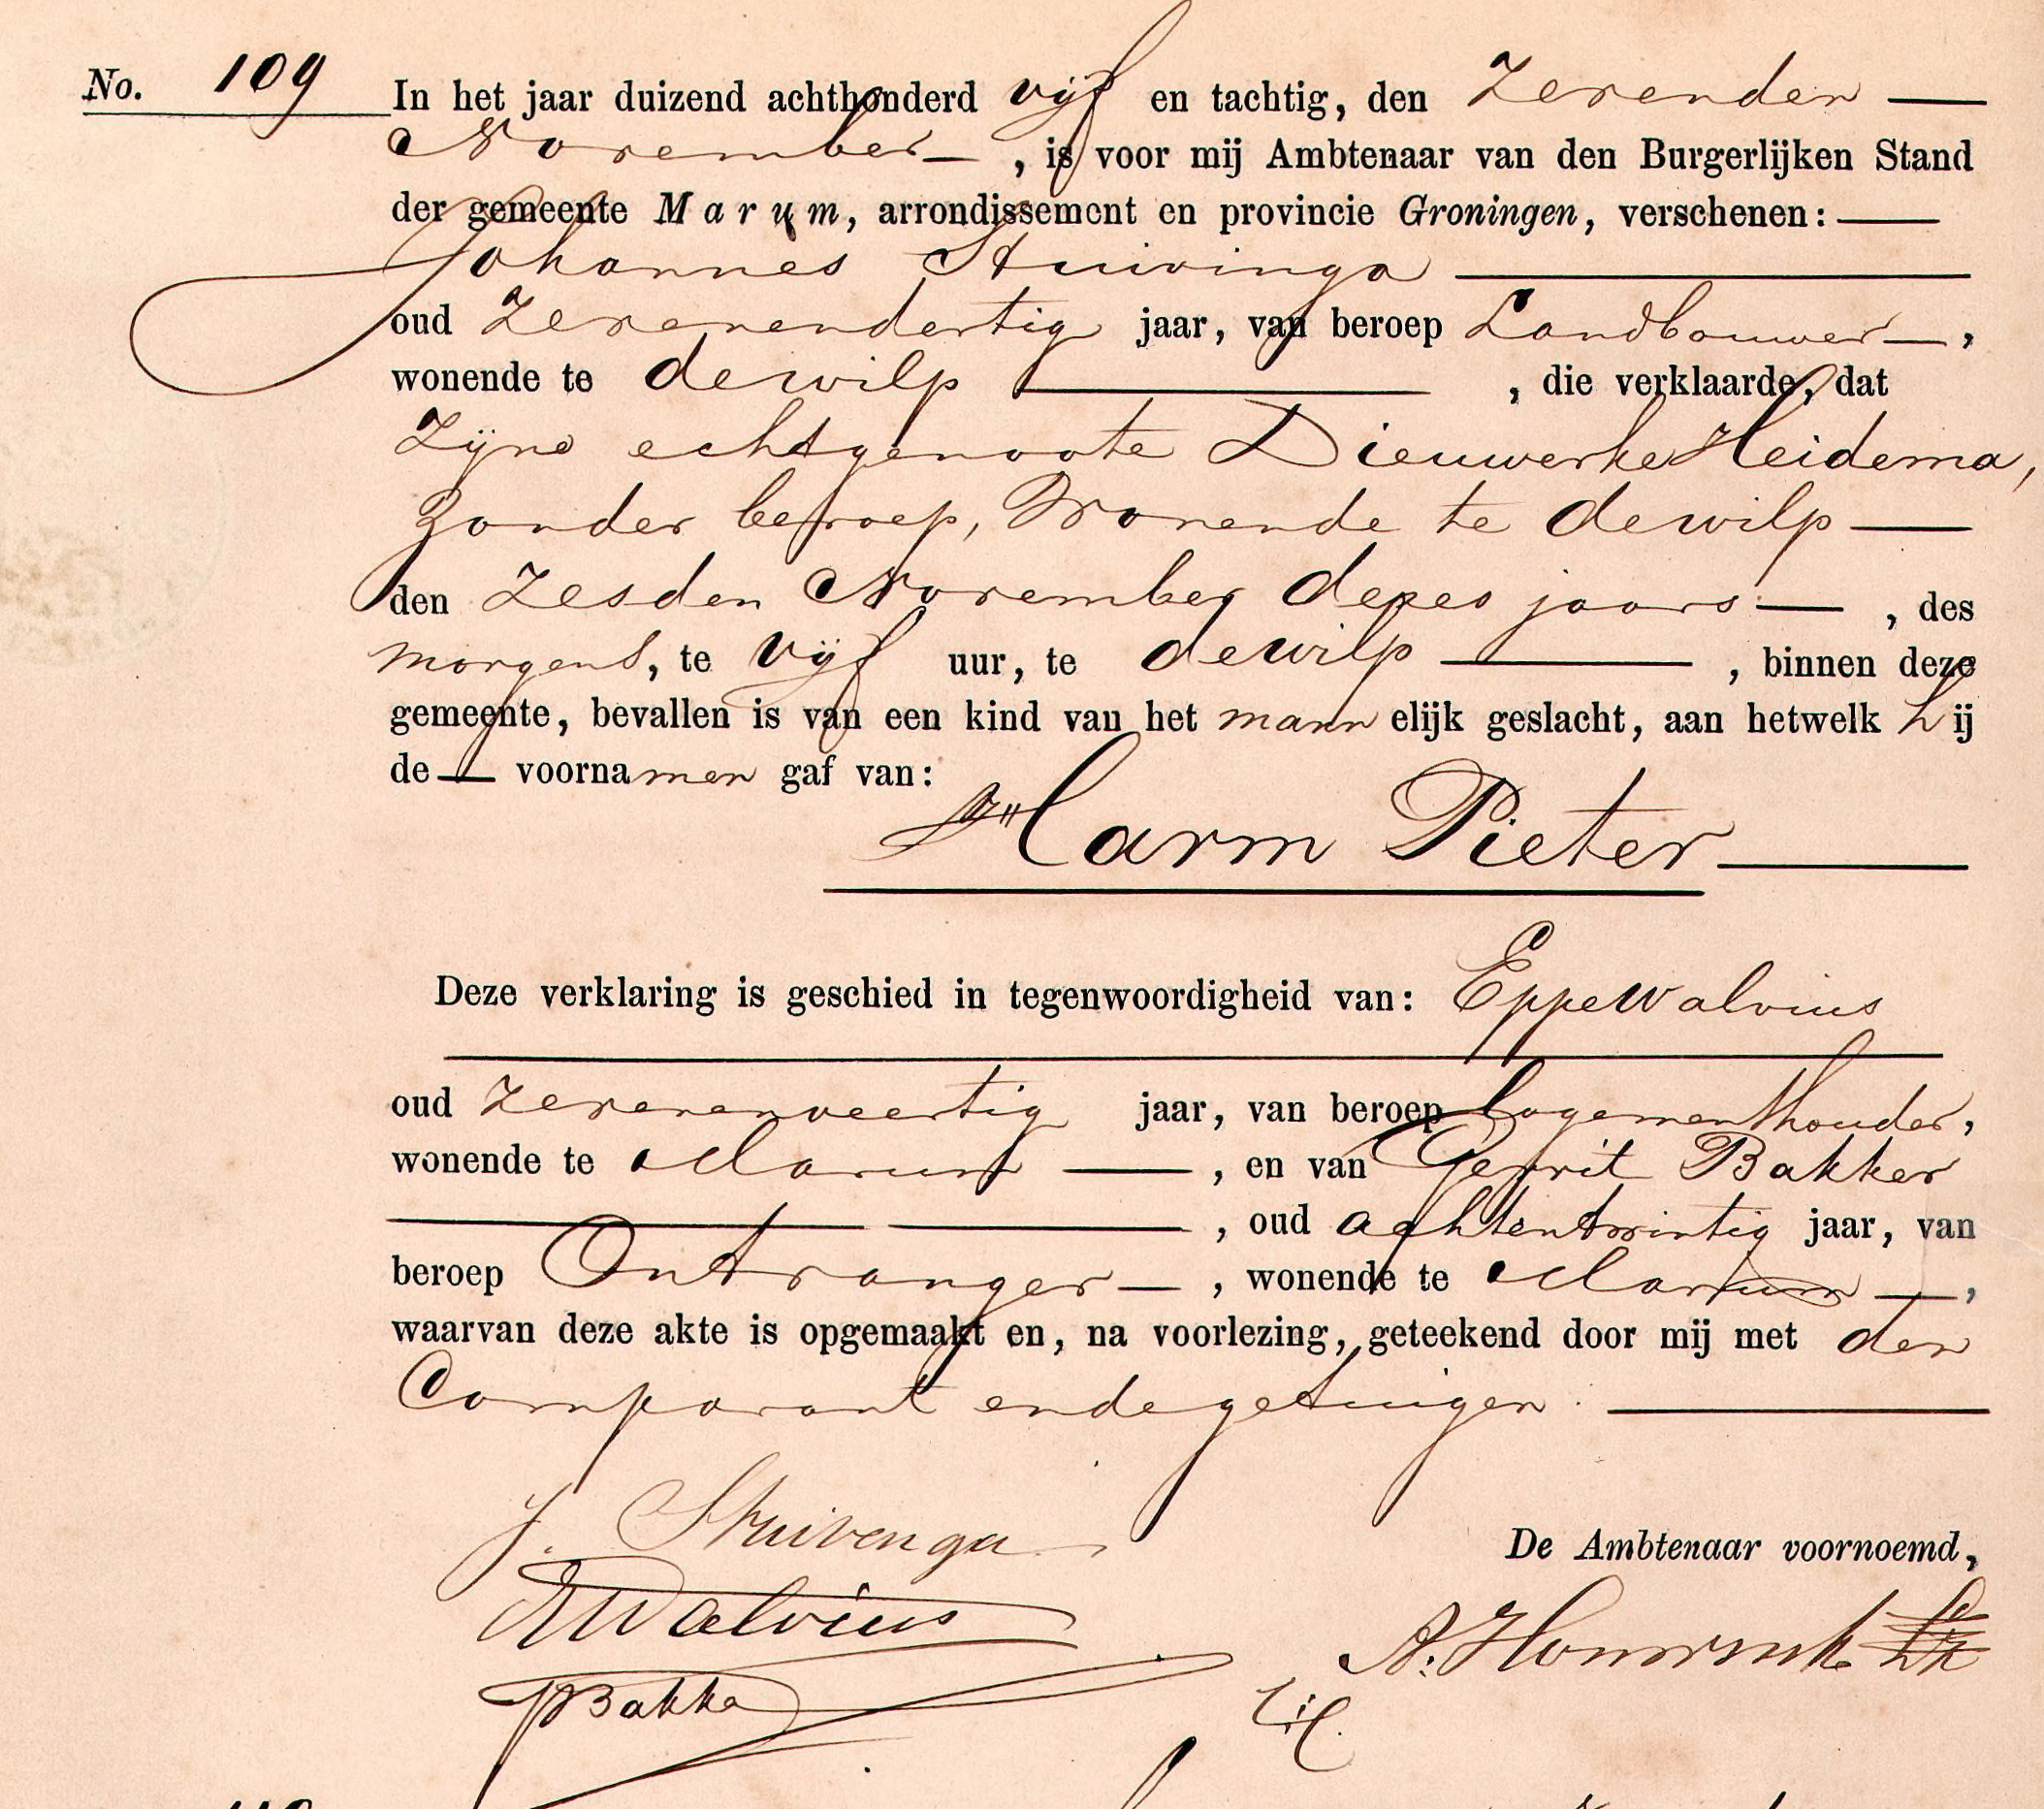 No. 109 In het jaar duizend achthonderd vijf en tachtig, den Zevenden
November, is voor mij Ambtenaar van den Burgerlijken Stand
der gemeente Marum, arrondissement en provincie Groningen, verschenen:
Johannes Stuivinga
oud Zevenendertig jaar, van beroep Landbouwer,
wonende te dewilp, die verklaarde, dat
Zijne echtgenoote Dieuwerke Heidema,
Zonder beroep, Wonende te dewilp
den Zesden November dezes jaars, des
morgens, te vijf uur, te dewilp, binnen deze
gemeente, bevallen is van een kind van het mannelijk geslacht, aan hetwelk hij
de voornamen gaf van:
Harm Pieter
Deze verklaring is geschied in tegenwoordigheid van: Eppe Walvius
oud Zevenenveertig jaar, van beroep Logementhouder,
wonende te Marum, en van Gerrit Bakker
, oud achtentwintig jaar, van
beroep Ontvanger, wonende te Marum,
waarvan deze akte is opgemaakt en, na voorlezing, geteekend door mij met den
Comparant en de getuigen.
J. Stuivenga
De Ambtenaar voornoemd,
EWalvius
GBakker